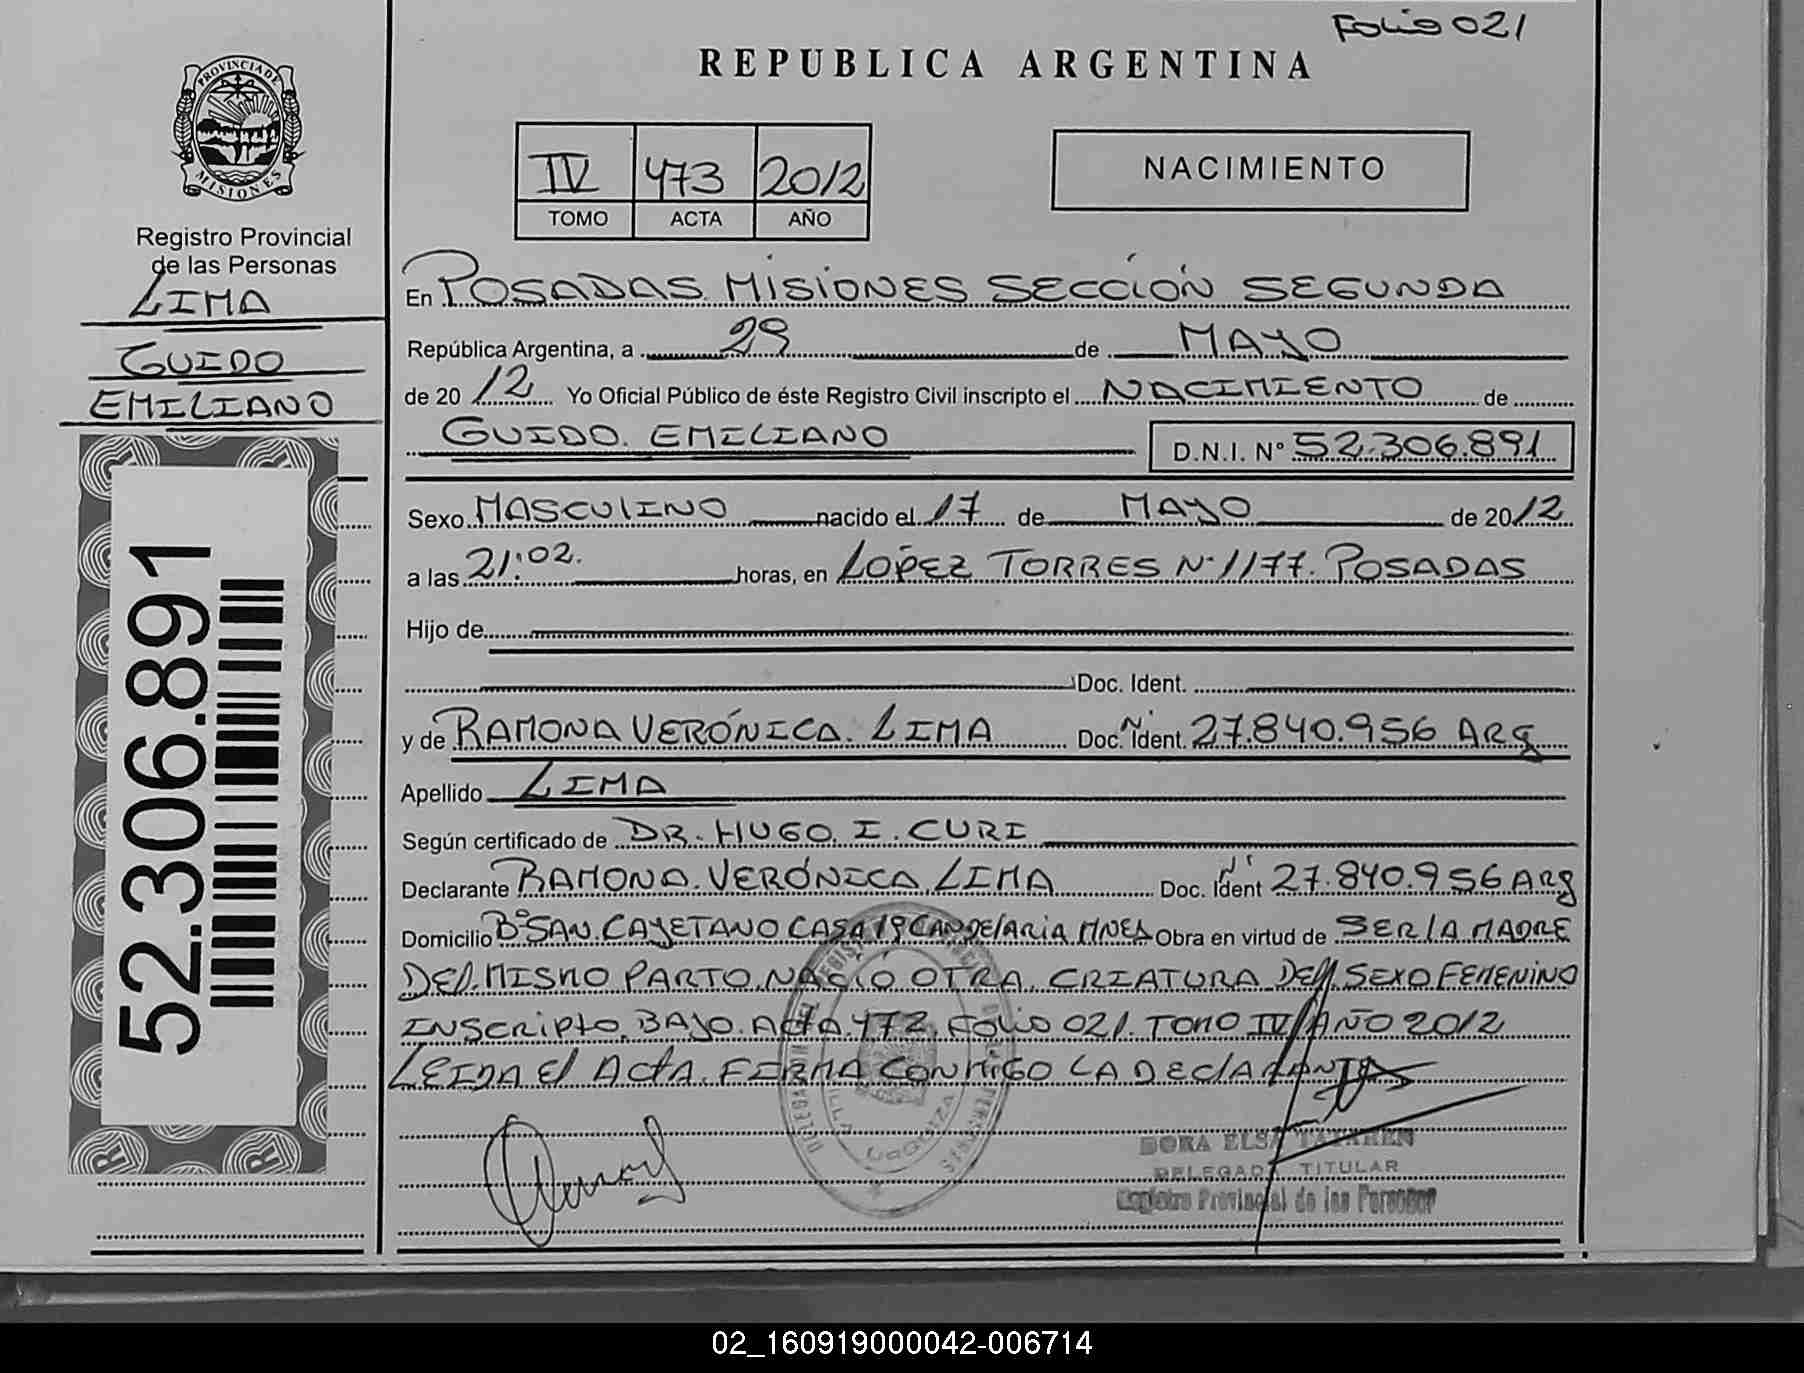 Folio 021
REPUBLICA ARGENTINA
PROVINCIA DE
MISIONES
IV 473 2012
TOMO ACTA AÑO
NACIMIENTO
Registro Provincial
de las Personas
LIMA
GUIDO
EMILIANO
52.306.891
En POSADAS MISIONES SECCIÓN SEGUNDA
República Argentina, a 29 de MAYO
de 2012 Yo Oficial Público de éste Registro Civil inscripto el NACIMIENTO de
GUIDO EMILIANO D.N.I. N° 52.306.891
Sexo MASCULINO nacido el 17 de MAYO de 2012
a las 21:02. horas, en LÓPEZ TORRES N° 1177. POSADAS
Hijo de
Doc. Ident.
y de RAMONA VERÓNICA LIMA Doc. N° Ident. 27.840.956 ARg
Apellido LIMA
Según certificado de DR. HUGO. I. CURI
Declarante RAMONA VERÓNICA LIMA Doc. N° Ident 27.840.956 ARg
Domicilio B° SAN CAYETANO CASA 19 CANDElARIA MNES Obra en virtud de SER lA MADRE
DEl MISMO PARTO NACIÓ OTRA CRIATURA DEl SEXO FEMENINO
INSCRIPto BAJO ActA 472 FOLIO 021. TOMO IV AÑO 2012
LEIDA El ActA FIRMA CONMIGO LA DEClARANTE
DORA ELSA
DELEGADA TITULAR
Registro Provincial de las Personas
02_160919000042-006714